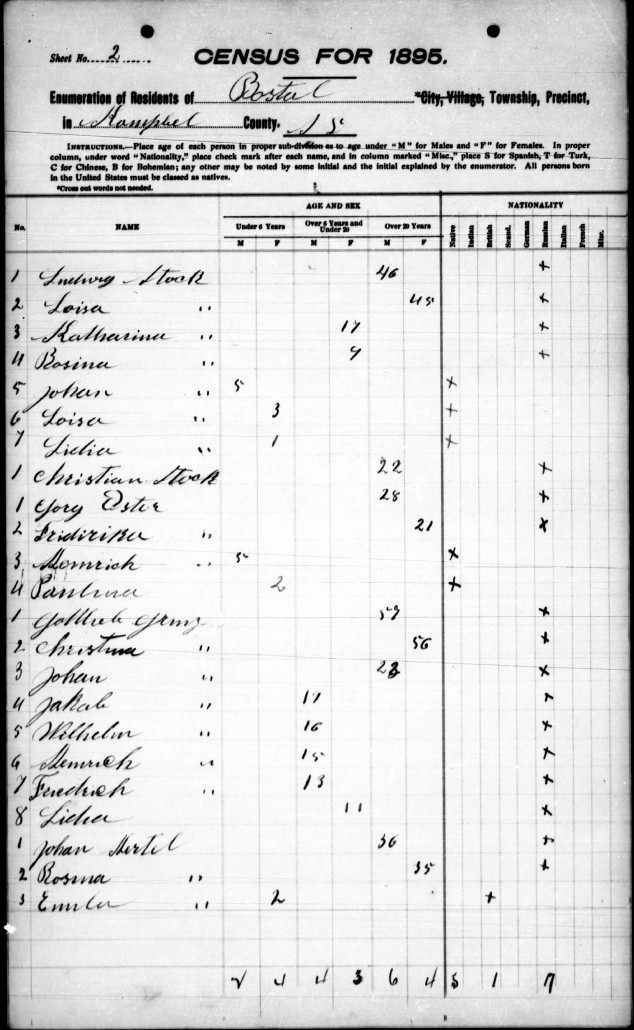 Sheet No. 2
CENSUS FOR 1895.
Enumeration of Residents of Postal *City, Village, Township, Precinct,
in Kampbel County. S S
INSTRUCTIONS.—Place age of each person in proper sub-division as to age under "M" for Males and "F" for Females. In proper
column, under word "Nationality," place check mark after each name, and in column marked "Misc.," place S for Spanish, T for Turk,
C for Chinese, B for Bohemian; any other may be noted by some initial and the initial explained by the enumerator. All persons born
in the United States must be classed as natives.
*Cross out words not needed.
No. NAME AGE AND SEX NATIONALITY
Under 6 Years Over 6 Years and Under 20 Over 20 Years
M F M F M F Native Indian British Scand. German Russian Italian French Misc.
1 Ludwig Stock 46 +
2 Loisa " 45 +
3 Katharina " 17 +
4 Rosina " 9 +
5 Johan " 5 +
6 Loisa " 3 +
7 Lidia " 1 +
1 Christian Stock 22 x
1 Gorg Ester 28 x
2 Fridirika " 21 x
3 Heinrich " 5 x
4 Paulina 2 +
1 Gottlieb 57 x
2 Christina " 56 x
3 Johan " 23 x
4 Jakob " 17 x
5 Wilhelm " 16 x
6 Heinrich " 15 x
7 Friedrich " 13 x
8 Lidia 11 x
1 Johan Hertel 36 x
2 Rosina " 35 +
3 " 2 +
2 4 4 3 6 4 5 1 17